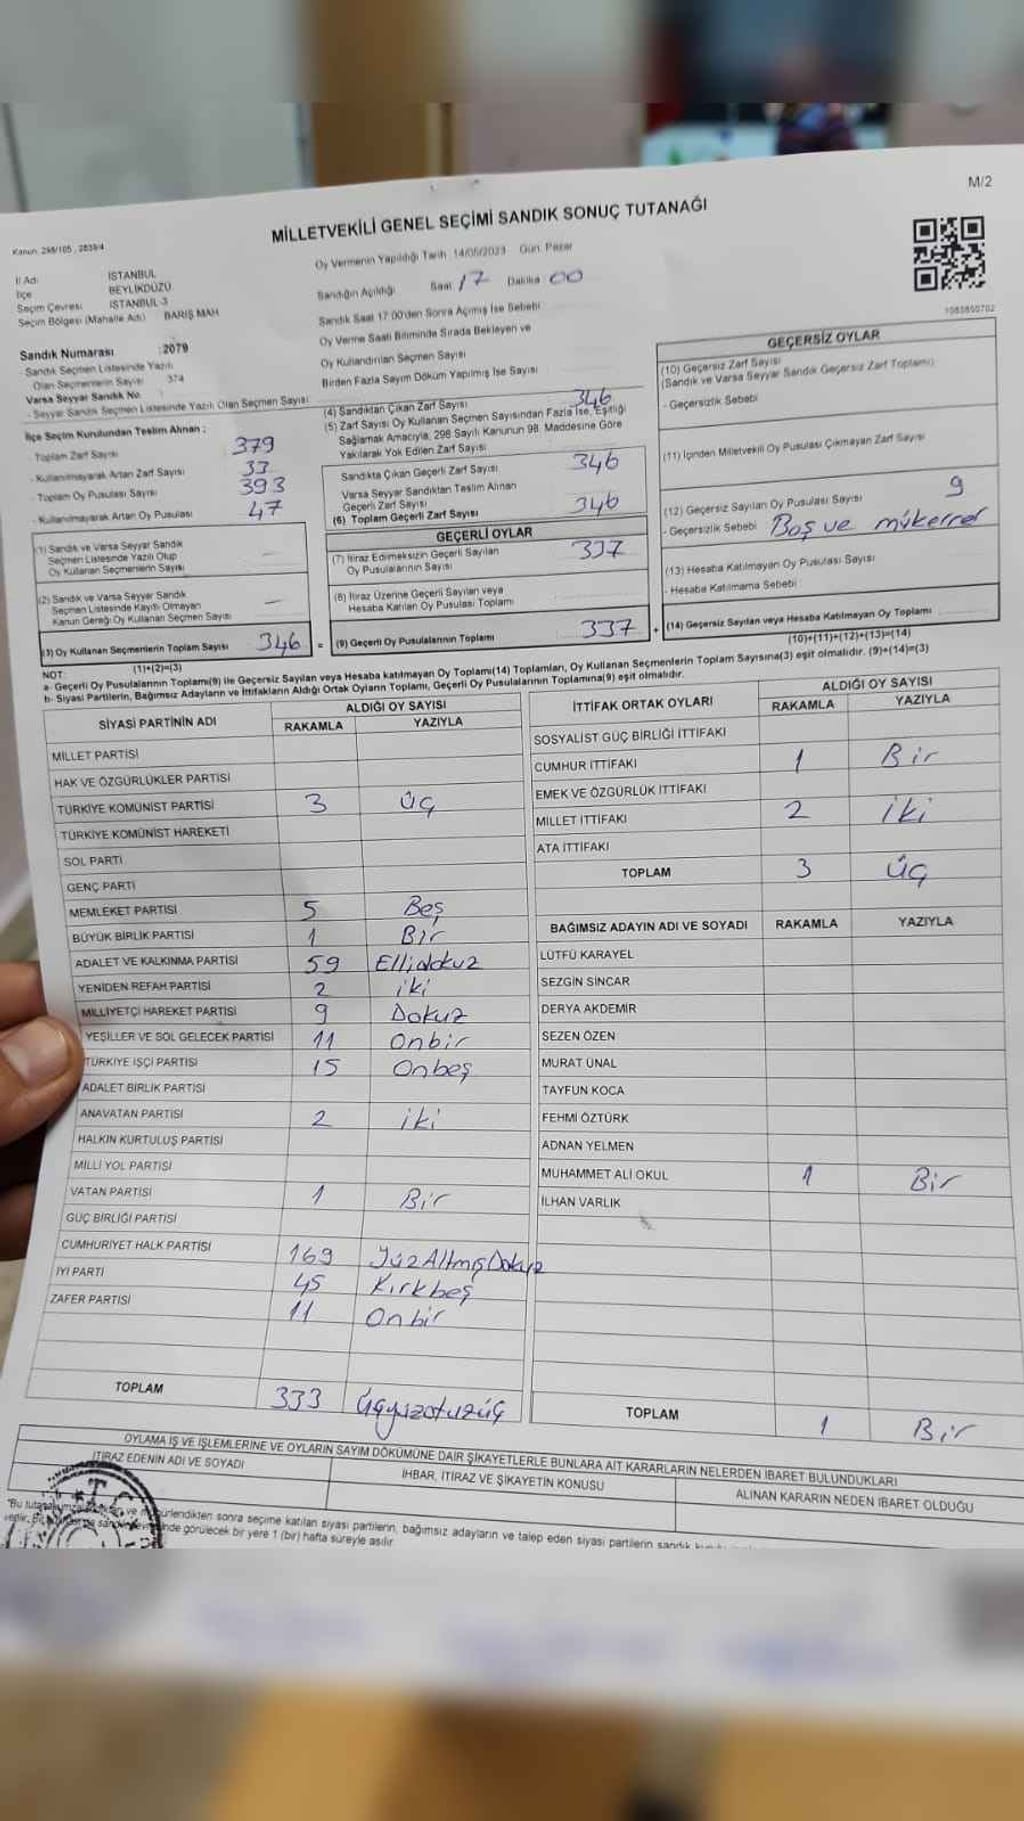 M/2
MİLLETVEKİLİ GENEL SEÇİMİ SANDIK SONUÇ TUTANAĞI
Kanun: 298/105 , 2839/4
İl Adı İSTANBUL
İlçe BEYLİKDÜZÜ
Seçim Çevresi İSTANBUL-3
Seçim Bölgesi (Mahalle Adı) BARIŞ MAH
Sandık Numarası : 2079
- Sandık Seçmen Listesinde Yazılı
Olan Seçmenlerin Sayısı 374
Varsa Seyyar Sandık No
- Seyyar Sandık Seçmen Listesinde Yazılı Olan Seçmen Sayısı
İlçe Seçim Kurulundan Teslim Alınan ;
- Toplam Zarf Sayısı 379
- Kullanılmayarak Artan Zarf Sayısı 33
- Toplam Oy Pusulası Sayısı 393
- Kullanılmayarak Artan Oy Pusulası 47
(1) Sandık ve Varsa Seyyar Sandık
Seçmen Listesinde Yazılı Olup
Oy Kullanan Seçmenlerin Sayısı —
(2) Sandık ve Varsa Seyyar Sandık
Seçmen Listesinde Kayıtlı Olmayan
Kanun Gereği Oy Kullanan Seçmen Sayısı —
(3) Oy Kullanan Seçmenlerin Toplam Sayısı 346 =
(1)+(2)=(3)
Oy Vermenin Yapıldığı Tarih :14/05/2023 Gün: Pazar
Sandığın Açıldığı Saat 17 Dakika 00
Sandık Saat 17:00'den Sonra Açılmış İse Sebebi
Oy Verme Saati Bitiminde Sırada Bekleyen ve
Oy Kullandırılan Seçmen Sayısı
Birden Fazla Sayım Döküm Yapılmış İse Sayısı
(4) Sandıktan Çıkan Zarf Sayısı 346
(5) Zarf Sayısı Oy Kullanan Seçmen Sayısından Fazla İse, Eşitliği
Sağlamak Amacıyla, 298 Sayılı Kanunun 98. Maddesine Göre
Yakılarak Yok Edilen Zarf Sayısı
Sandıkta Çıkan Geçerli Zarf Sayısı 346
Varsa Seyyar Sandıktan Teslim Alınan
Geçerli Zarf Sayısı
(6) Toplam Geçerli Zarf Sayısı 346
GEÇERLİ OYLAR
(7) İtiraz Edilmeksizin Geçerli Sayılan
Oy Pusulalarının Sayısı 337
(8) İtiraz Üzerine Geçerli Sayılan veya
Hesaba Katılan Oy Pusulası Toplamı
(9) Geçerli Oy Pusulalarının Toplamı 337 +
1085850702
GEÇERSİZ OYLAR
(10) Geçersiz Zarf Sayısı
(Sandık ve Varsa Seyyar Sandık Geçersiz Zarf Toplamı)
- Geçersizlik Sebebi
(11) İçinden Milletvekili Oy Pusulası Çıkmayan Zarf Sayısı
(12) Geçersiz Sayılan Oy Pusulası Sayısı 9
- Geçersizlik Sebebi Boş ve mükerrer
(13) Hesaba Katılmayan Oy Pusulası Sayısı
- Hesaba Katılmama Sebebi
(14) Geçersiz Sayılan veya Hesaba Katılmayan Oy Toplamı
(10)+(11)+(12)+(13)=(14)
NOT:
a- Geçerli Oy Pusulalarının Toplamı(9) ile Geçersiz Sayılan veya Hesaba katılmayan Oy Toplamı(14) Toplamları, Oy Kullanan Seçmenlerin Toplam Sayısına(3) eşit olmalıdır. (9)+(14)=(3)
b- Siyasi Partilerin, Bağımsız Adayların ve İttifakların Aldığı Ortak Oyların Toplamı, Geçerli Oy Pusulalarının Toplamına(9) eşit olmalıdır.
SİYASİ PARTİNİN ADI ALDIĞI OY SAYISI
RAKAMLA YAZIYLA
MİLLET PARTİSİ
HAK VE ÖZGÜRLÜKLER PARTİSİ
TÜRKİYE KOMÜNİST PARTİSİ 3 Üç
TÜRKİYE KOMÜNİST HAREKETİ
SOL PARTİ
GENÇ PARTİ
MEMLEKET PARTİSİ 5 Beş
BÜYÜK BİRLİK PARTİSİ 1 Bir
ADALET VE KALKINMA PARTİSİ 59 Ellidokuz
YENİDEN REFAH PARTİSİ 2 iki
MİLLİYETÇİ HAREKET PARTİSİ 9 Dokuz
YEŞİLLER VE SOL GELECEK PARTİSİ 11 Onbir
TÜRKİYE İŞÇİ PARTİSİ 15 Onbeş
ADALET BİRLİK PARTİSİ
ANAVATAN PARTİSİ 2 iki
HALKIN KURTULUŞ PARTİSİ
MİLLİ YOL PARTİSİ
VATAN PARTİSİ 1 Bir
GÜÇ BİRLİĞİ PARTİSİ
CUMHURİYET HALK PARTİSİ 169 YüzAltmışDokuz
İYİ PARTİ 45 Kırkbeş
ZAFER PARTİSİ 11 Onbir
TOPLAM 333 Üçyüzotuzüç
İTTİFAK ORTAK OYLARI ALDIĞI OY SAYISI
RAKAMLA YAZIYLA
SOSYALİST GÜÇ BİRLİĞİ İTTİFAKI
CUMHUR İTTİFAKI 1 Bir
EMEK VE ÖZGÜRLÜK İTTİFAKI
MİLLET İTTİFAKI 2 iki
ATA İTTİFAKI
TOPLAM 3 Üç
BAĞIMSIZ ADAYIN ADI VE SOYADI RAKAMLA YAZIYLA
LÜTFÜ KARAYEL
SEZGİN SİNCAR
DERYA AKDEMİR
SEZEN ÖZEN
MURAT ÜNAL
TAYFUN KOCA
FEHMİ ÖZTÜRK
ADNAN YELMEN
MUHAMMET ALİ OKUL 1 Bir
İLHAN VARLIK
TOPLAM 1 Bir
OYLAMA İŞ VE İŞLEMLERİNE VE OYLARIN SAYIM DÖKÜMÜNE DAİR ŞİKAYETLERLE BUNLARA AİT KARARLARIN NELERDEN İBARET BULUNDUKLARI
İTİRAZ EDENİN ADI VE SOYADI
İHBAR, İTİRAZ VE ŞİKAYETİN KONUSU
ALINAN KARARIN NEDEN İBARET OLDUĞU
"Bu ve sonra seçime katılan siyasi partilerin, bağımsız adayların ve talep eden siyasi partilerin sandık
görülecek bir yere 1 (bir) hafta süreyle asılır